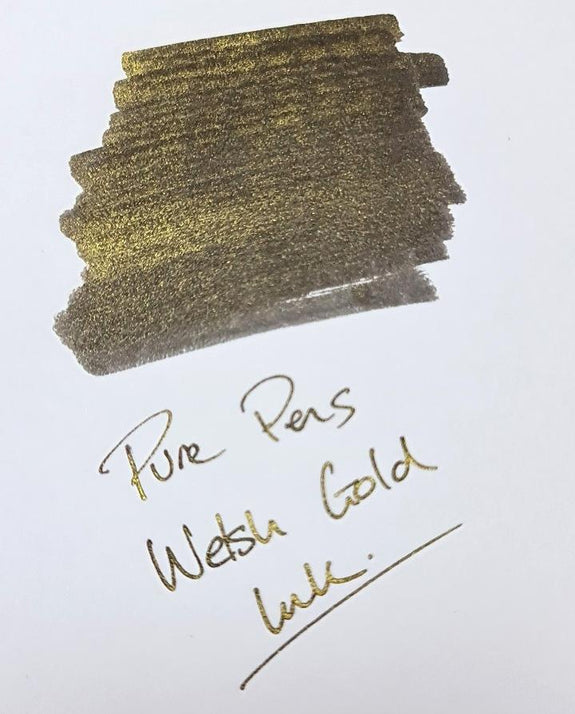 Pure Pens
Welsh Gold
Ink.